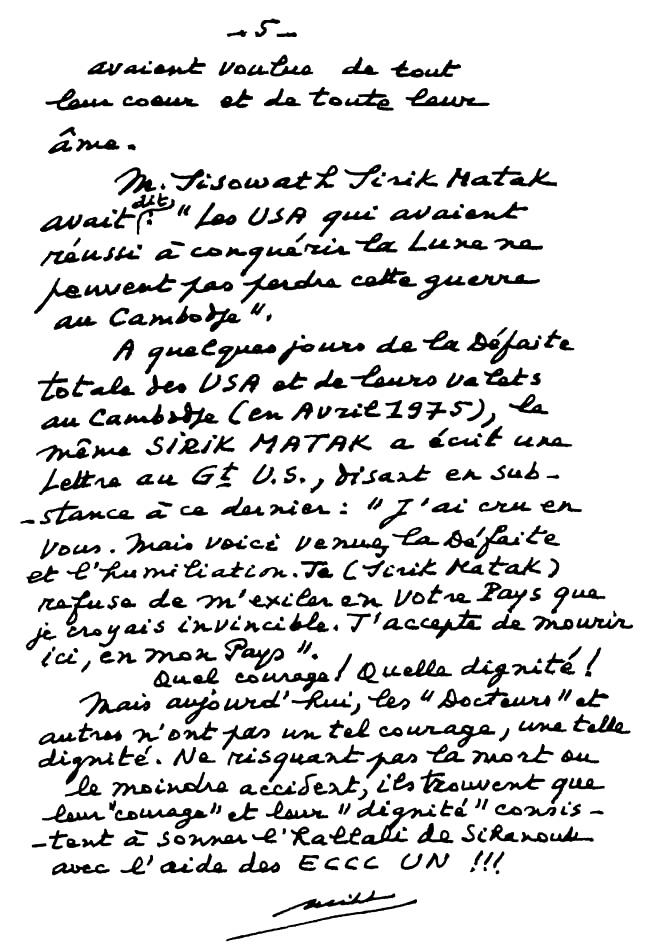 - 5 -
avaient voulue de tout
leur coeur et de toute leur
âme.
M. Sisowath Sirik Matak
avait dit : "Les USA qui avaient
réussi à conquérir la Lune ne
peuvent pas perdre cette guerre
au Cambodge".
A quelques jours de la Défaite
totale des USA et de leurs valets
au Cambodge (en Avril 1975), le
même SIRIK MATAK a écrit une
Lettre au Gt U.S., disant en sub-
-stance à ce dernier : "J'ai cru en
Vous. Mais voici venue, la Défaite
et l'humiliation. Je (Sirik Matak)
refuse de m'exiler en Votre Pays que
je croyais invincible. J'accepte de mourir
ici, en mon Pays".
Quel courage ! Quelle dignité !
Mais aujourd'hui, les "Docteurs" et
autres n'ont pas un tel courage, une telle
dignité. Ne risquant pas la mort ou
le moindre accident, ils trouvent que
leur "courage" et leur "dignité" consis-
-tent à sonner l'hallali de Sihanouk
avec l'aide des ECCC UN !!!